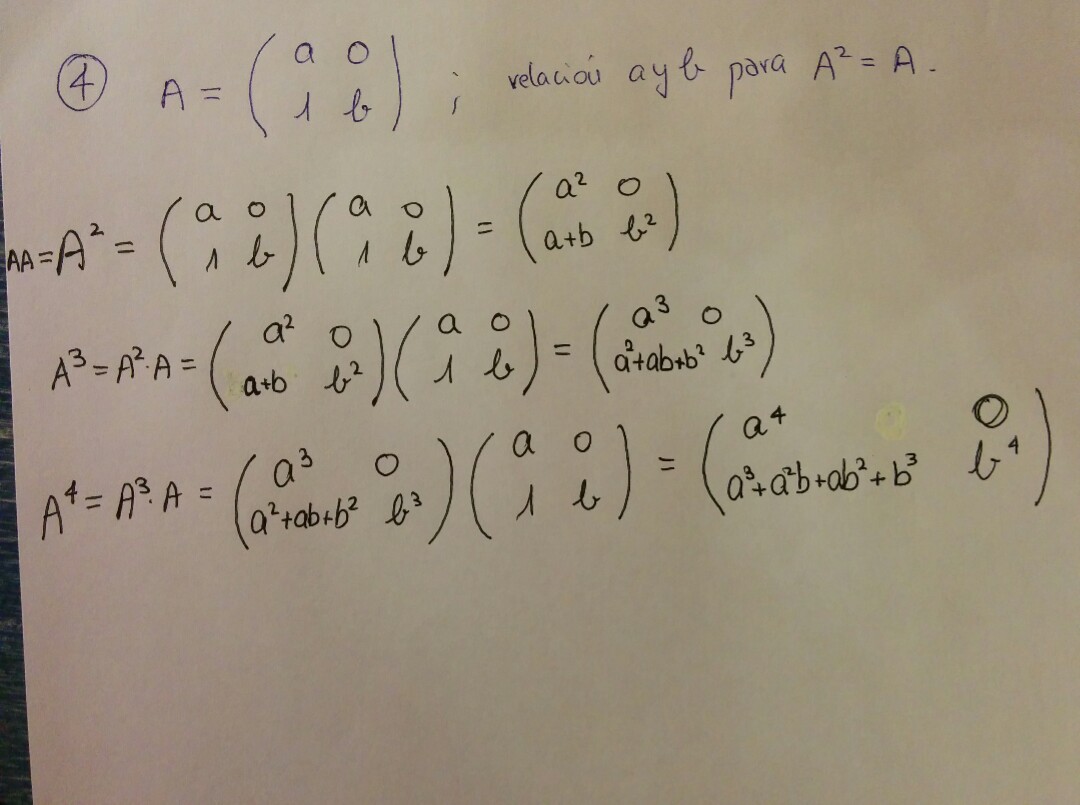 ④ A = ( a 0 / 1 b ) ; relación a y b para A² = A.
AA = A² = ( a 0 / 1 b ) ( a 0 / 1 b ) = ( a² 0 / a+b b² )
A³ = A²·A = ( a² 0 / a+b b² ) ( a 0 / 1 b ) = ( a³ 0 / a²+ab+b² b³ )
A⁴ = A³·A = ( a³ 0 / a²+ab+b² b³ ) ( a 0 / 1 b ) = ( a⁴ 0 / a³+a²b+ab²+b³ b⁴ )